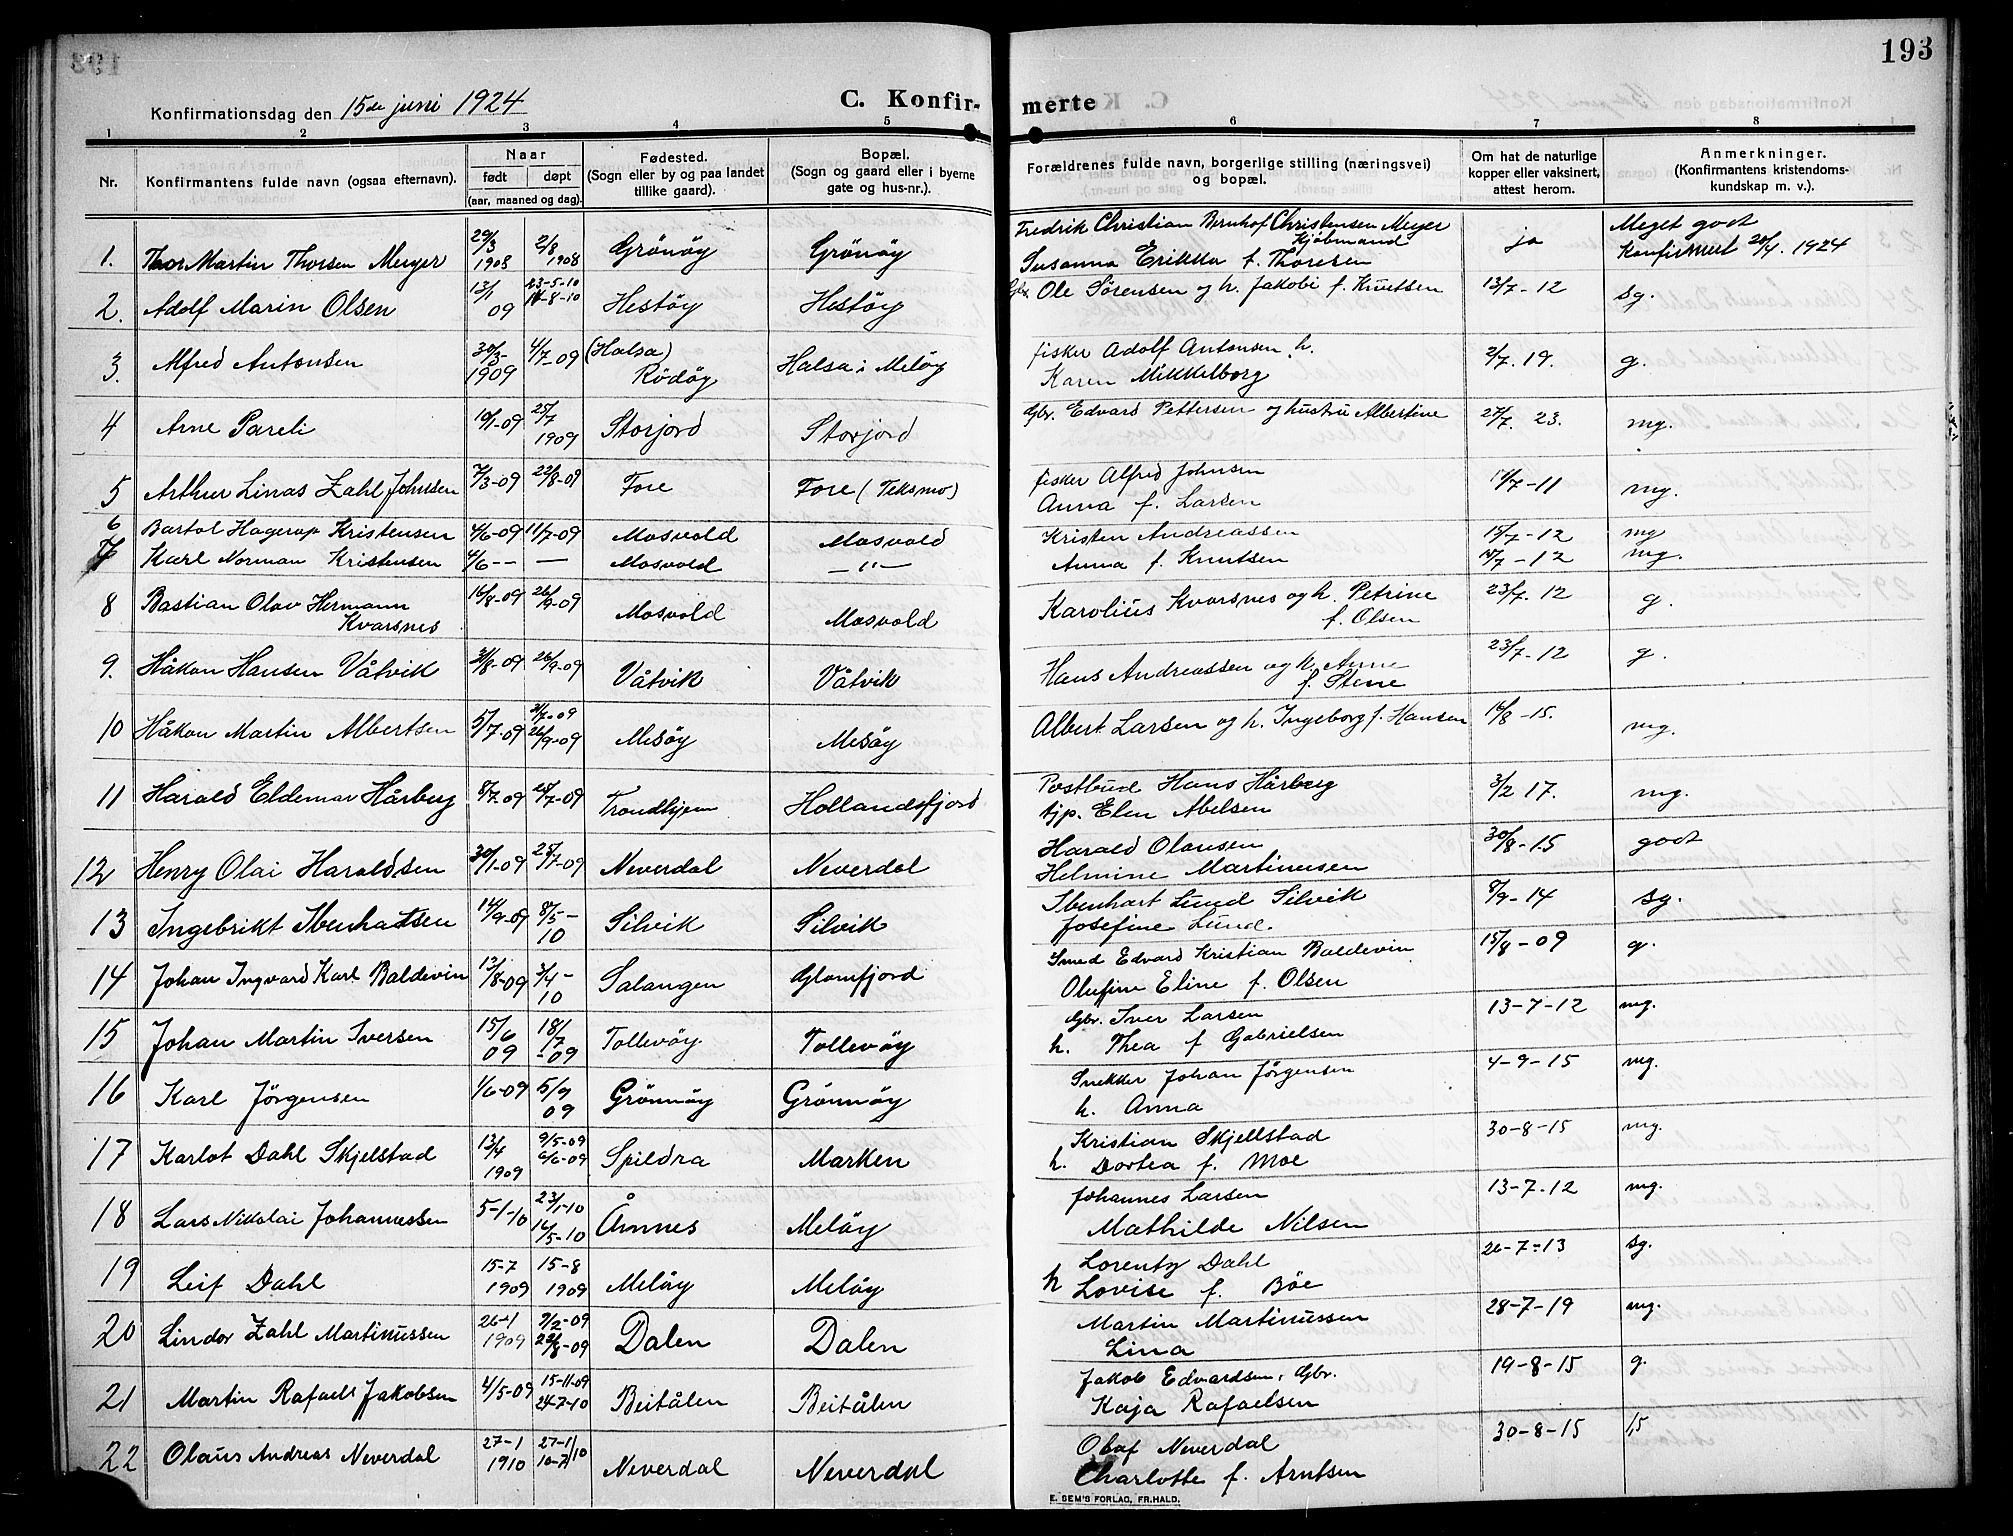 193
Konfirmationsdag den 15de juni 1924
C. Konfir-merte
1 2 3 4 5 6 7 8
Nr. Konfirmantens fulde navn (ogsaa efternavn). Naar født døpt (aar, maaned og dag). Fødested. (Sogn eller by og paa landet tillike gaard). Bopæl. (Sogn og gaard eller i byerne gate og hus-nr.). Forældrenes fulde navn, borgerlige stilling (næringsvei) og bopæl. Om hat de naturlige kopper eller vaksinert, attest herom. Anmerkninger. (Konfirmantens kristendoms-kundskap m. v.).
1. Thor Martin Thorsen Meyer 29/3 1908 2/8 1908 Grönöy Grönöy Fredrik Christian Bernhof Christensen Meyer Kjöbmand Susanna Erikka f. Thoresen ja Meget godt Konfirmert 20/4. 1924
2. Adolf Marin Olsen 13/1 09 23-5-10 14-8-10 Hestöy Hestöy Gbr. Ole Sörensen og h. Jakobi f. Knutsen 13/7-12 sg.
3. Alfred Antonsen 30/3-1909 4/7-09 (Halsa) Rödöy Halsa i Melöy fisker Adolf Antonsen h. Karen Mikkelborg 2/7. 19. g.
4 Arne Pareli 10/1-09 25/7 1909 Storjord Storjord Gbr. Edvard Pettersen og hustru Albertine 27/7. 23. mg.
5 Arthur Linas Zahl Johnsen 7/3-09 22/8-09 Fore Fore (Teksmo) fisker Alfred Johnsen Anna f. Larsen 11/7-11 mg.
6 Bartol Hagerup Kristensen 4/6-09 11/7-09 Mosvold Mosvold Kristen Andreassen 15/7-12 mg
7 Karl Norman Kristensen 4/6 -- — Mosvold —"— Anna f. Knutsen 15/7-12 mg.
8 Bastian Olav Hermann Kvarsnes 16/8-09 26/9-09 Mosvold Mosvold Karolius Kvarsnes og h. Petrine f. Olsen 23/7. 12 g.
9. Håkon Hansen Våtvik 31/8-09 26/9-09 Våtvik Våtvik Hans Andreassen og h. Anne f. Stene 23/7-12 g.
10 Håkon Martin Albertsen 5/7-09 31/7-09 26/9-09 Mesöy Mesöy Albert Larsen og h. Ingeborg f. Hansen 16/8-15. mg.
11 Harald Eldemar Hårberg 8/2-09 24/7-09 Trondhjem Hollandsfjord Postbud Hans Hårberg tjp. Elen Abelsen 3/2 17. mg.
12 Henry Olai Haraldsen 30/1-09 25/7-09 Neverdal Neverdal Harald Olausen Helmine Martinussen 30/8-15 godt
13 Ingebrikt Ibenhartsen 14/9-09 8/5-10 Silvik Silvik Ibenhart Lund Silvik Josefine Lund. 8/9-14 sg.
14 Johan Ingvard Karl Baldevin 13/8-09 3/4-10 Salangen Glomfjord Smed Edvard Kristian Baldevin Olufine Eline f. Olsen 15/8-09 g.
15 Johan Martin Iversen 15/6 09 18/7-09 Tollevöy Tollevöy Gbr. Iver Larsen h. Thea f Gabrielsen 13-7-12 mg.
16 Karl Jörgensen 1/6-09 5/9 09 Grönnöy Grönnöy Snekker Johan Jörgensen h. Anna 4-9-15 mg.
17 Karlot Dahl Skjelstad 13/4 1909 9/5-09 6/6-09 Spildra Marken Kristian Skjellstad h. Dortea f. Moe 30-8-15 mg.
18 Lars Nikolai Johannessen 5-1-10 23/1-10 14/5-10 Åmnes Melöy Johannes Larsen Mathilde Nilsen 13-7-12 mg.
19 Leif Dahl 15-7 1909 15-8 1909 Melöy Melöy Lorentz Dahl h Lovise f. Böe 26-7-13 sg.
20 Lindor Zahl Martinussen 26-1 1909 9/2-09 22/8-09 Dalen Dalen Martin Martinussen Lina 28-7-19 mg.
21 Martin Rafaels Jakobsen 4/5-09 15-11-09 24-7-10 Beitålen Beitålen Jakob Edvardsen, Gbr. Kaja Rafaelsen 19-8-15 g.
22 Olaus Andreas Neverdal 27-1 1910 27-1/10 10-7/10 Neverdal Neverdal Olaf Neverdal Charlotte f. Arntsen 30-8-15 1,5
E. SEM'S FORLAG, FR.HALD.